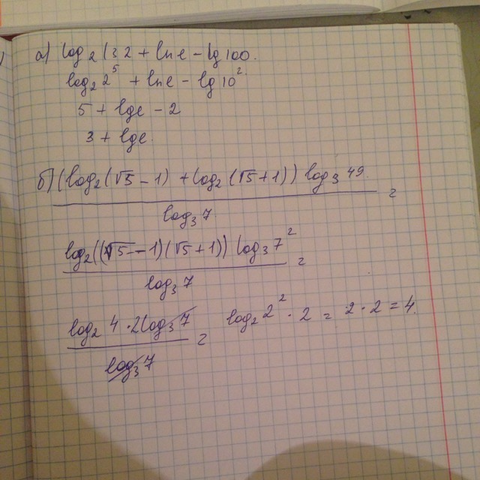 а) log₂ 32 + lne - lg100.
log₂ 2⁵ + lne - lg10²
5 + lge - 2
3 + lge
б) (log₂(√5 - 1) + log₂(√5+1)) log₃ 49 =
log₃ 7
log₂((√5 - 1)(√5+1)) log₃ 7² =
log₃ 7
log₂ 4 · 2log₃ 7 = log₂ 2² · 2 = 2 · 2 = 4
log₃ 7